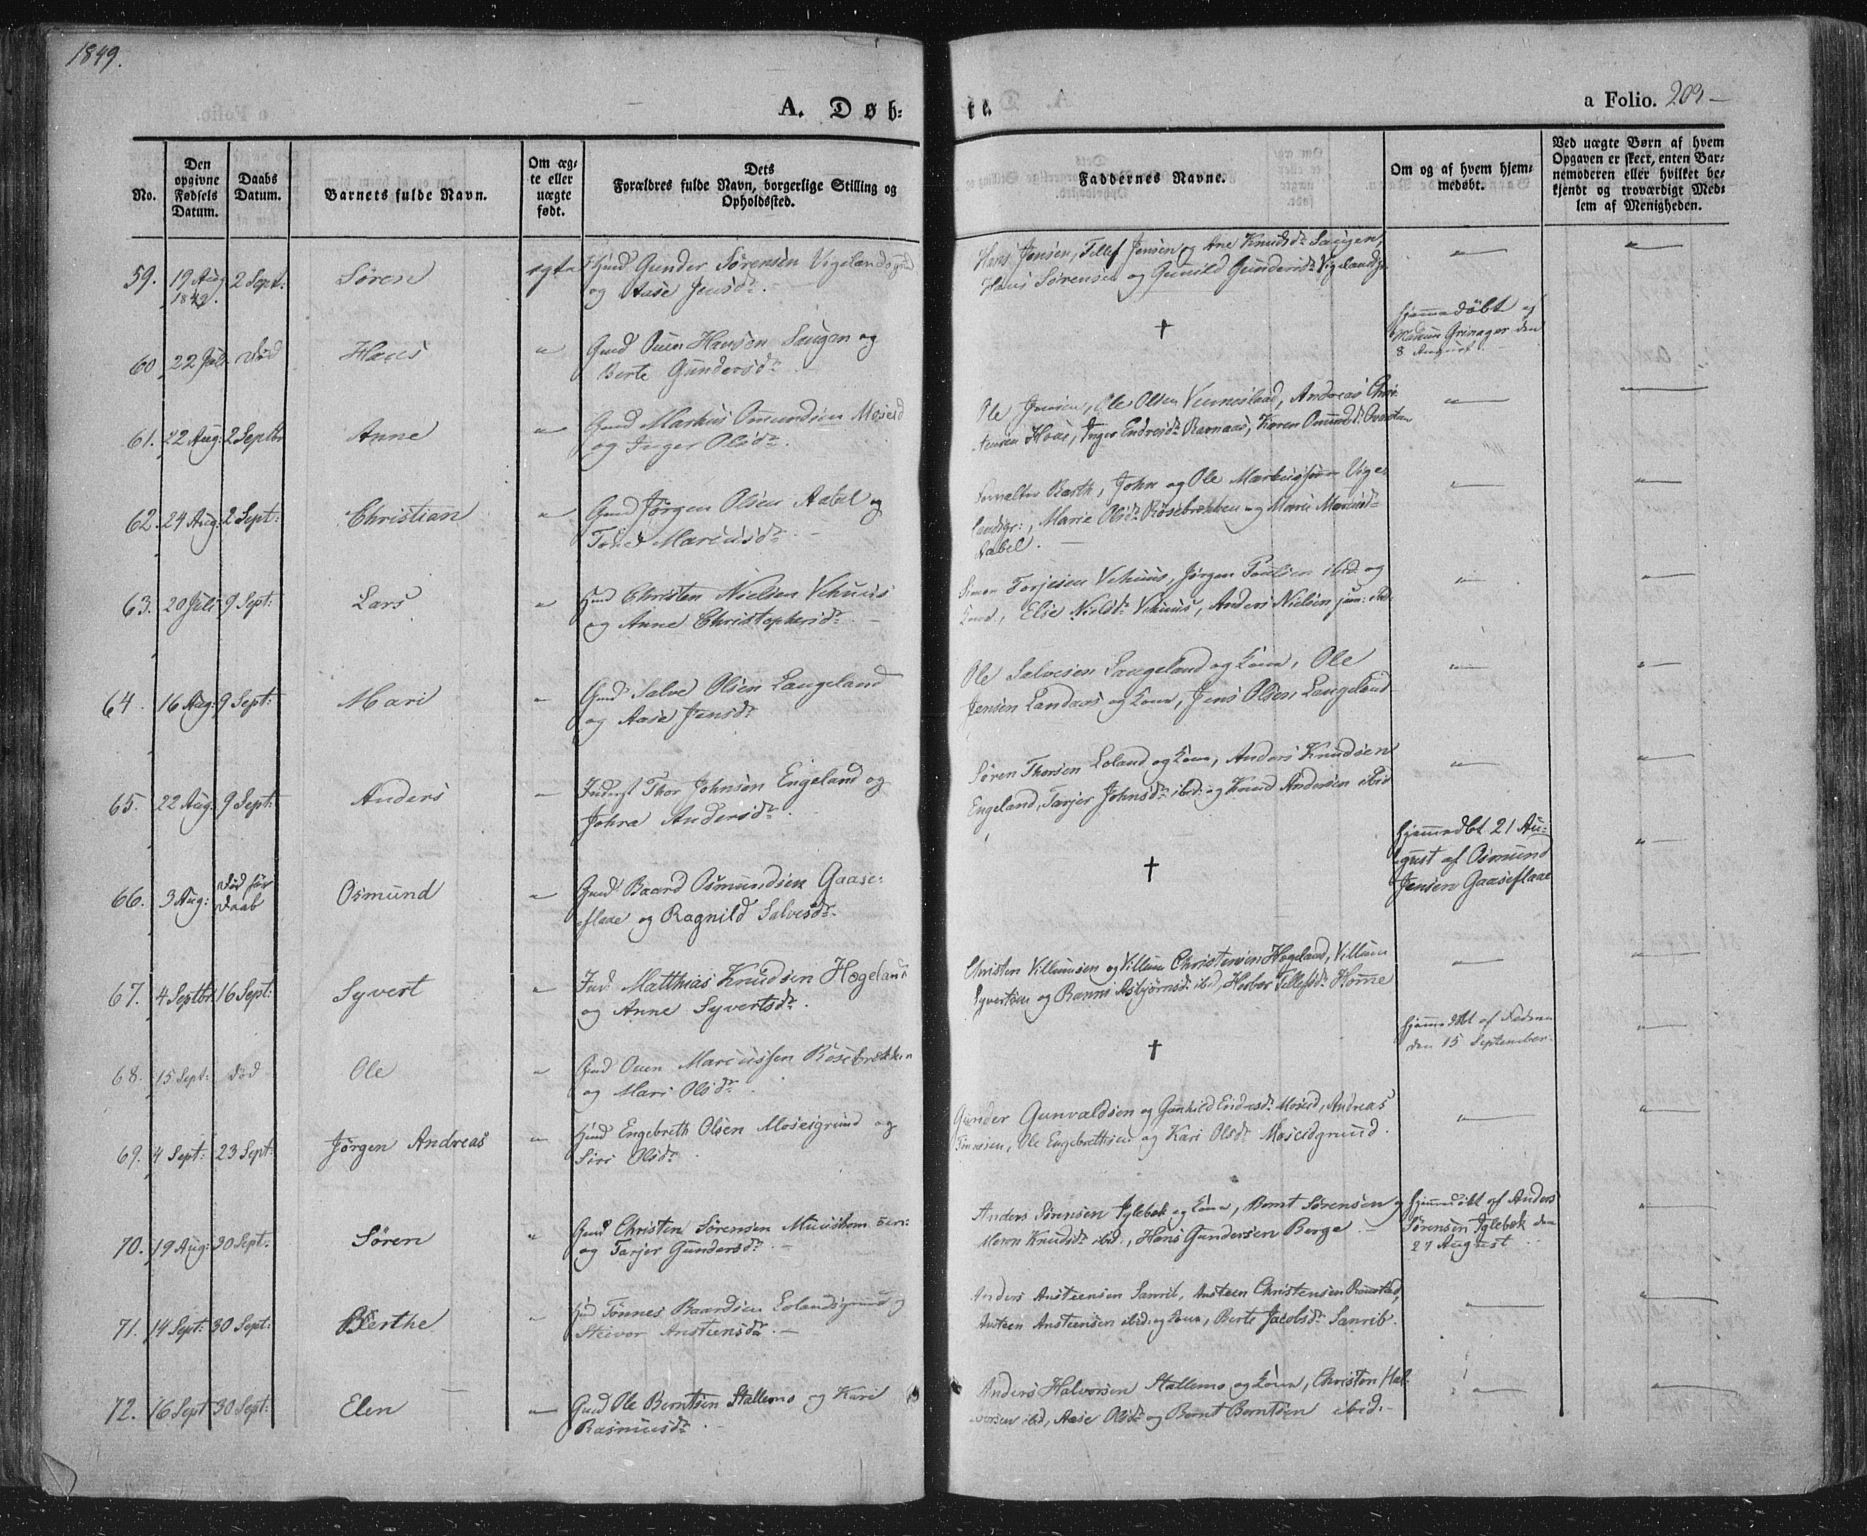 1849.
A. Døb=
te.
a Folio. 203
No.
Den opgivne Fødsels Datum.
Daabs Datum.
Barnets fulde Navn.
Om æg-te eller uægte født.
Dets Forældres fulde Navn, borgerlige Stilling og Opholdssted.
Faddernes Navne.
Om og af hvem hjem-medøbt.
Ved uægte Børn af hvem Opgaven er skeet, enten Bar-nemoderen eller hvilket be-kjendt og troværdigt Med-lem af Menigheden.
59. 19 Aug 1849. 2 Sept: Søren ægte Hmd Gunder Sørensen Vigelandsgrd
og Aase Jensdr.
Hans Jensen, Tellef Jensen og Ane Knudsdr Saugen,
Hans Sørensen og Gunild Gundersdr Vigelandsgr
60 22 Juli død Hans " Gmd Ouen Hansen Saugen og
Berte Gundersdr
†
Hjemmedøbt af
Madam Grinager den
8 August
61. 22 Aug: 2 Septbr Anne " Gmd Markus Omundsen Moseid
og Inger Olsdr.
Ole Jensen, Ole Olsen Venneslad, Andreas Chri-
stensen Hoas, Inger Endresdr Ravnaas, Karen Omundsdr
62. 24 Aug: 2 Sept: Christian " Gmd Jørgen Olsen Aabel og
Tone Marcusdr.
Barth, John og Ole Markussønn Vige-
landsgr:, Marie Olsdr Røsebrekken og Marie
Aabel.
63. 20 Juli 9 Sept: Lars " Hmd Christen Nielsen Vehuus
og Anne Christophersdr.
Simon Torjesen Vehuus, Jørgen Poulsen ibid og
Kone, Else Nielsdr Vehuus, Anders Nielsen jun: ibid.
64. 16 Aug: 9 Sept: Mari " Gmd Salve Olsen Langeland
og Aase Jensdr
Ole Salvesen Langeland og Kone, Ole
Jensen Landaas og Kone, Jens Olsen Langeland
65. 22 Aug: 9 Sept: Anders — Thor Johnsen Engeland og
Johra Andersdr.
Søren Thorsen Loland og Kone, Anders Knudsen
Engeland, Tarjer Johnsdr ibid: og Knud Andersen ibid
66. 3 Aug: død før Daab Osmund " Gmd Baard Osmundsen Gaase-
flaae og Ragnild Salvesdr.
†
Hjemmedbt 21 Au-
gust af Osmund
Jensen Gaaseflaae
67. 4 Septbr 16 Sept: Syvert " Ind Matthias Knudsen Hægeland
og Anne Syvertsdr.
Christen Villumsen og Villum Christensen Hægeland, Villum
Syvertsen og Ranni Asbjørnsd: ibid, Herbor Tellefsdr Homme
68. 15 Sept: død Ole " Gmd Ouen Marcussen Røsebrekken
og Mari Olsdr.
†
Hjemmedbt af Fadren
den 15 September.
69. 4 Sept: 23 Sept: Jørgen Andreas " Hmd Engebreth Olsen Moseigrund og
Siri Olsdr.
Gunder Gunvaldsen og Gunhild Endresdr Moseid, Andreas
Tønnesen, Ole Engebrethsen og Kari Olsdr Moseidgrund.
70. 19 Aug: 30 Sept: Søren " Gmd Christen Sørensen
og Tarjer Gundersdr. —
Anders Sørensen Iglebæk og Kone, Bernt Sørensen og
Maren Knudsdr ibid., Hans Gundersen Berge —
Hjemmedøbt af Anders
Sørensen Iglebæk den
27 August
71. 14 Sept: 30 Sept: Berthe " Hmd Tønnes Baardsen Lolandsgrund og
Steivor Anstensdr. —
Anders Anstensen Samrib, Ansteen Christensen Rønestad,
Ansteen Ansteensen ibid: og Kone, Berte Jacobsdr Samrib.
72. 16 Sept 30 Sept: Elen — Gmd Ole Berntsen Stallemo og Kari
Rasmusdr.
Anders Halvorsen Stallemo og Kone, Christen Hal-
vorsen ibid, Aase Olsdr og Bernt Berntsen ibid.